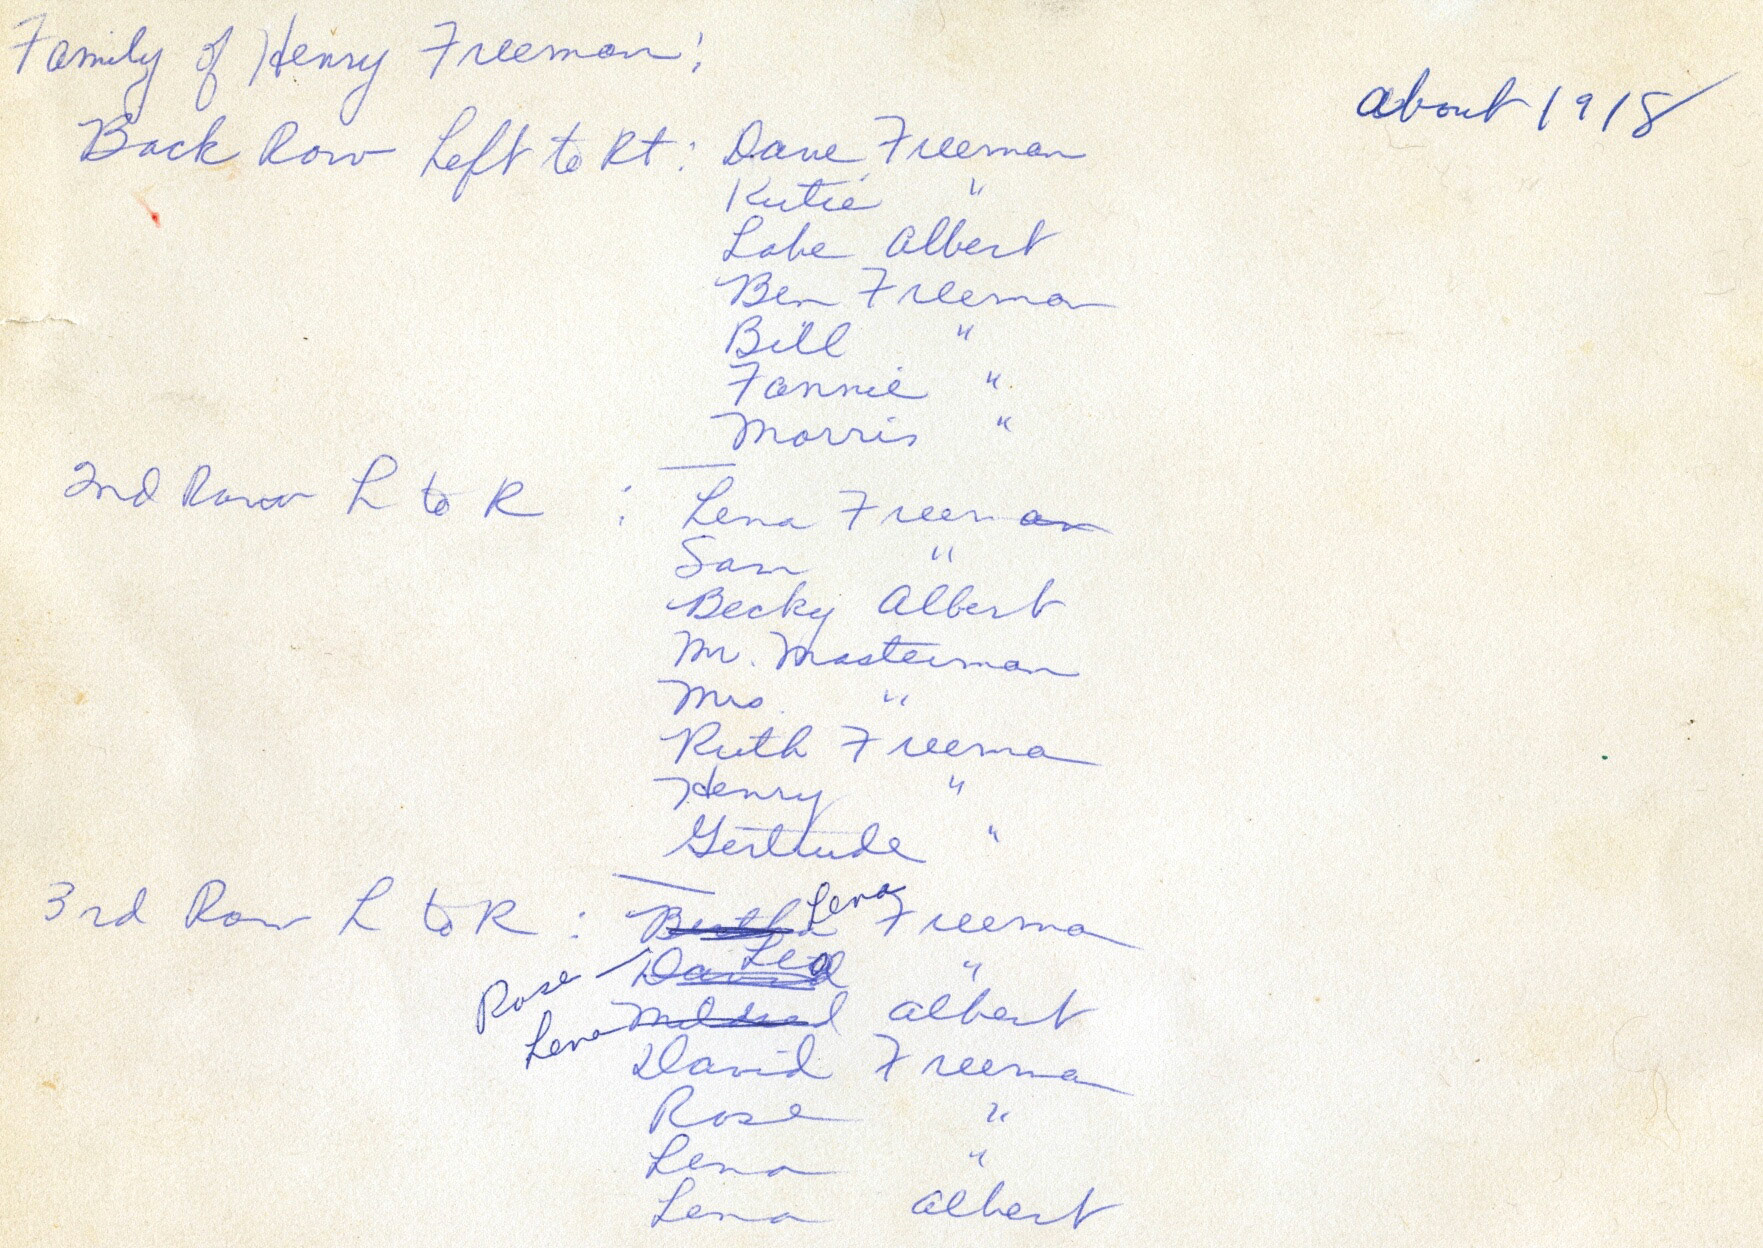 Family of Henry Freeman:
about 1918
Back Row Left to Rt: Dave Freeman
Kutie "
Labe Albert
Ben Freeman
Bill "
Fannie "
Morris "
2nd Row L to R : Lena Freeman
Sam "
Becky Albert
Mr. Masterman
Mrs. "
Ruth Freeman
Henry "
Gertrude "
3rd Row L to R : Bertha Lena Freeman
Rose David Lea "
Lena Mildred Albert
David Freeman
Rose "
Lena "
Lena Albert